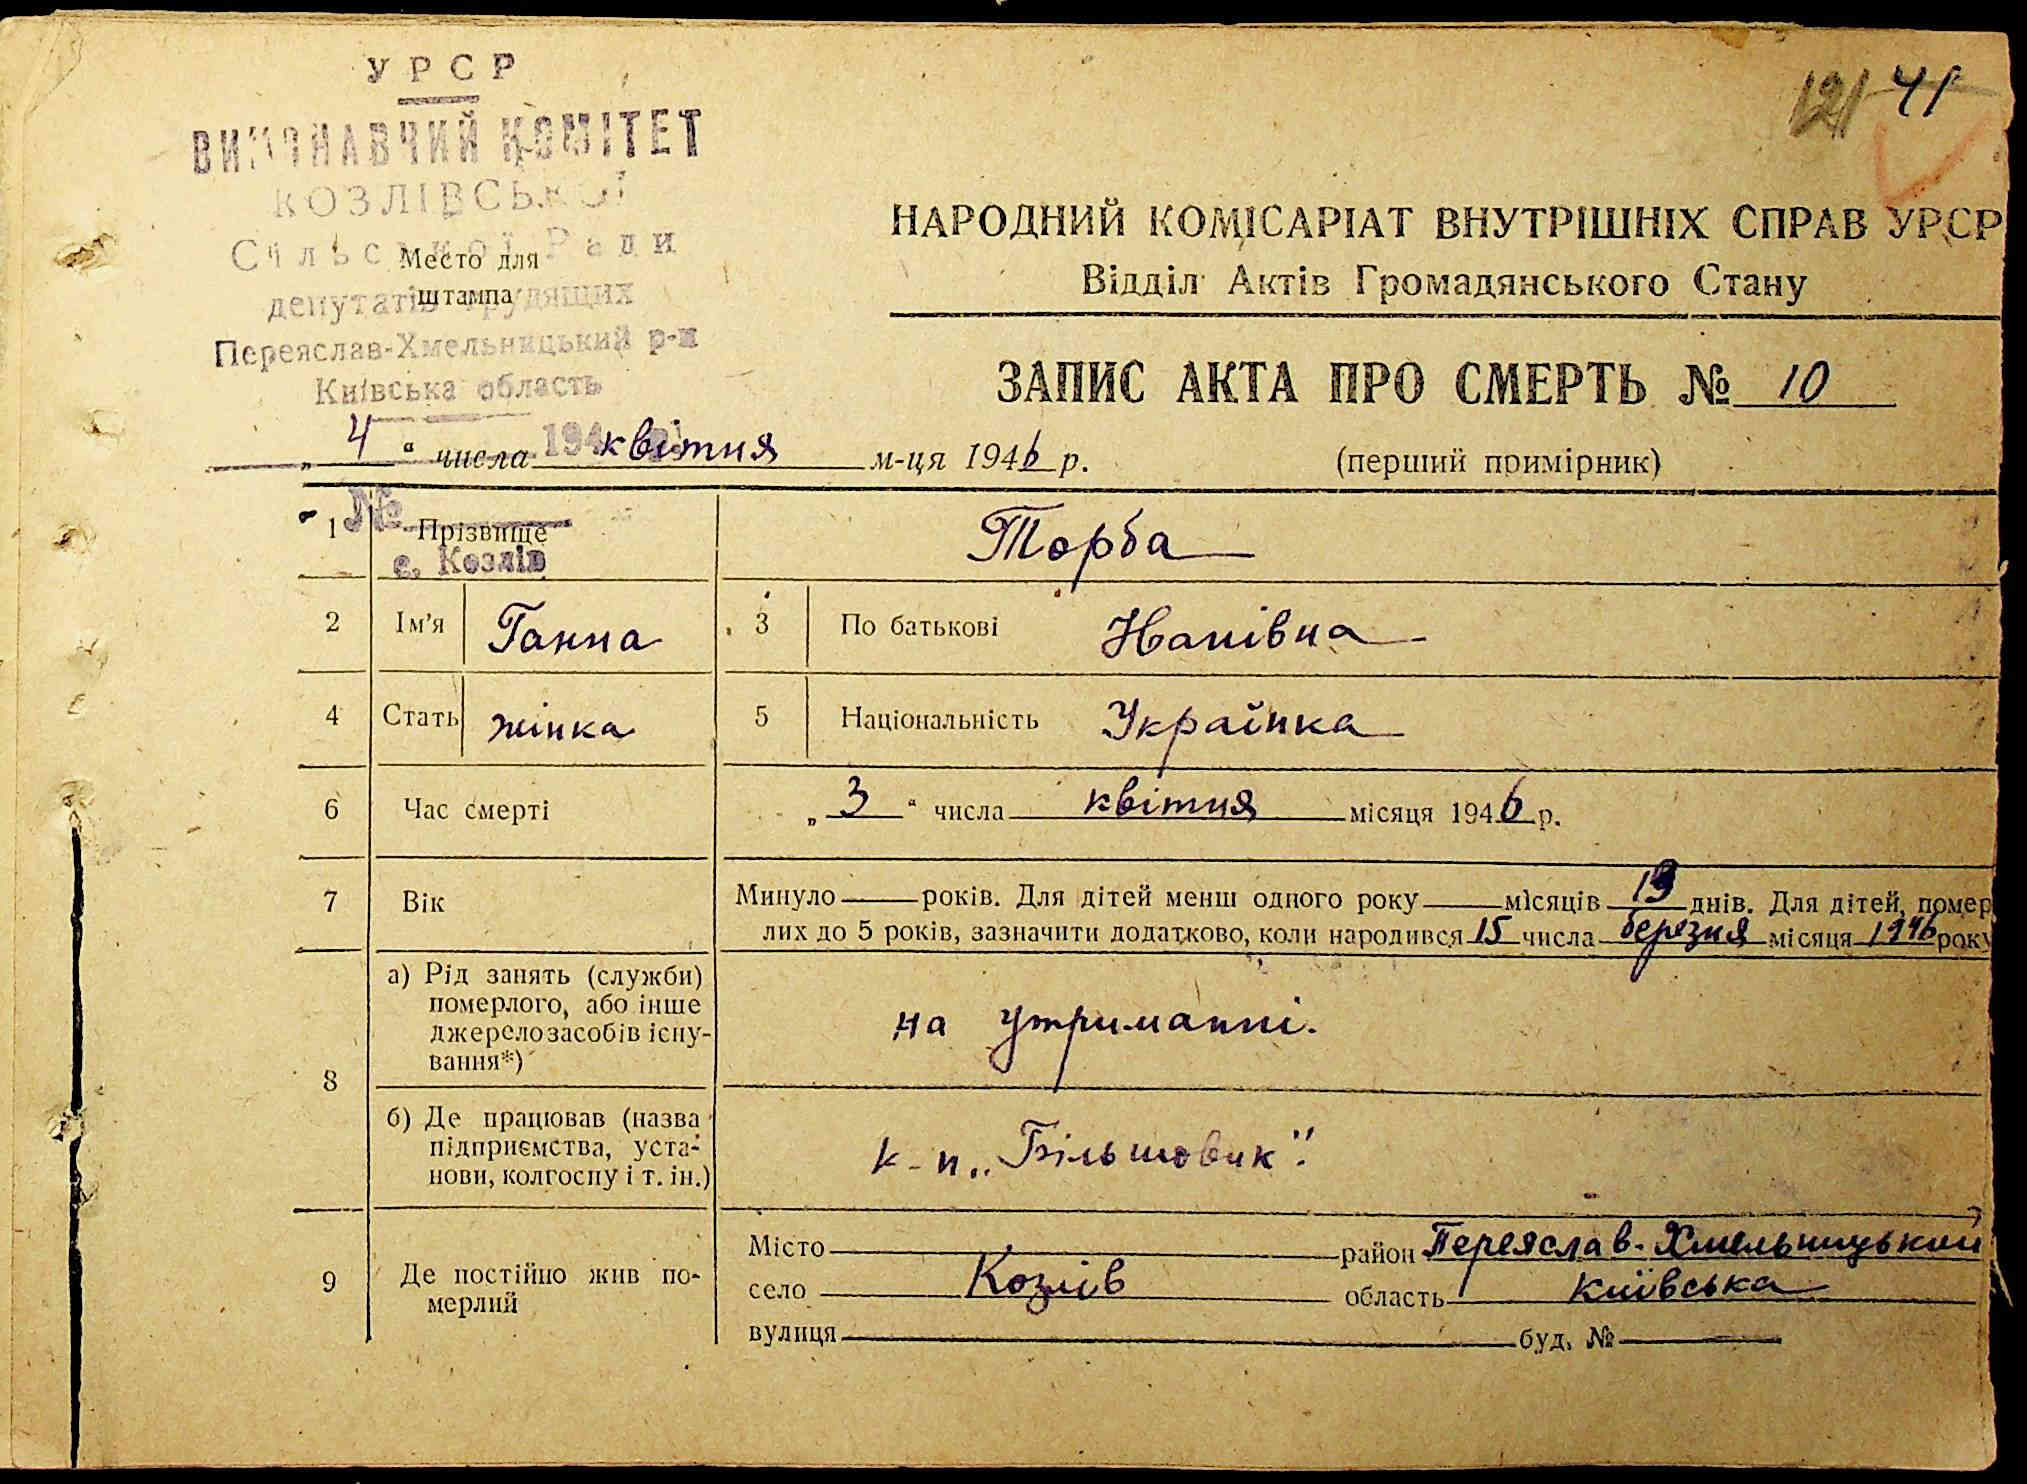 УРСР
ВИКОНАВЧИЙ КОМІТЕТ
КОЗЛІВСЬКОЇ
Сільської Ради
депутатів трудящих
Переяслав-Хмельницький р-н
Київська область
Место для
штампа
121 41
НАРОДНИЙ КОМІСАРІАТ ВНУТРІШНІХ СПРАВ УРСР
Відділ Актів Громадянського Стану
ЗАПИС АКТА ПРО СМЕРТЬ № 10
(перший примірник)
„ 4 “ числа квітня м-ця 1946 р.
194
№
с. Козлів
1 Прізвище Торба
2 Ім'я Ганна 3 По батькові
4 Стать жінка 5 Національність Українка
6 Час смерті „ 3 “ числа квітня місяця 1946 р.
7 Вік Минуло — років. Для дітей менш одного року — місяців 19 днів. Для дітей, помер
лих до 5 років, зазначити додатково, коли народився 15 числа березня місяця 1946 року
8 а) Рід занять (служби)
померлого, або інше
джерело засобів існу-
вання*)
на утриманні.
б) Де працював (назва
підприємства, уста-
нови, колгоспу і т. ін.)
к-п „Більшовик".
9 Де постійно жив по-
мерлий
Місто район Переяслав-Хмельницький
село Козлів область Київська
вулиця буд. №